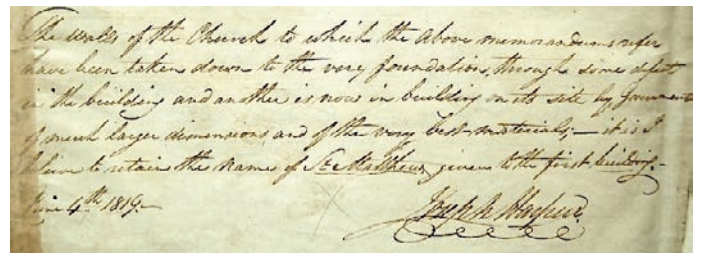 The walls of the Church to which the above memorandums refer
have been taken down to the very foundation, through some defect
in the building and another is now in building on its site by Government
of much larger dimensions, and of the very best materials; — it is I
believe to retain the name of St. Matthew, given to the first building. —
June 4th 1819. —
Joseph Harpur.